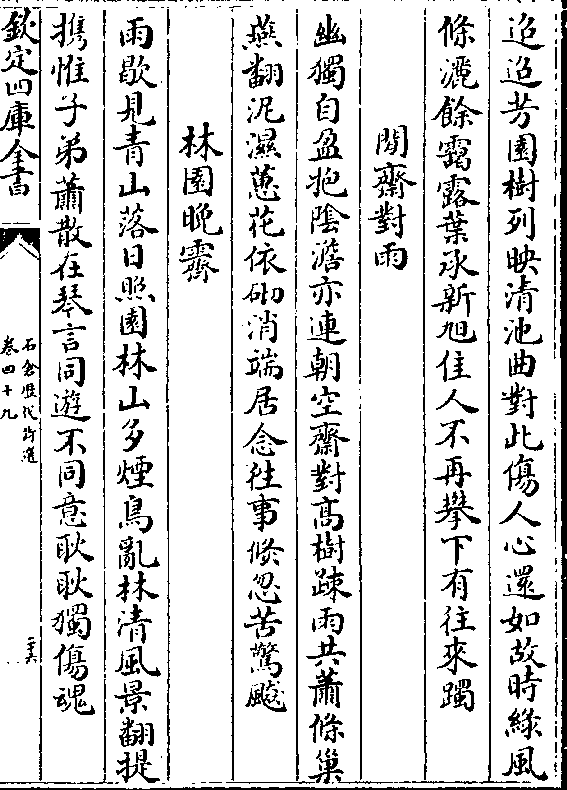 迢迢芳園樹列映清池曲對此傷人心還如故時緑風
條灑餘靄露葉承新旭佳人不再攀下有往來躅
閒齋對雨
幽獨自盈抱陰澹亦連朝空齋對高樹疎雨共蕭條巢
燕翻泥濕蕙花依砌消端居念往事倐忽苦驚飇
林園晚霽
雨歇見青山落日照園林山多煙鳥亂林清風景翻提
携惟子弟蕭散在琴言同遊不同意耿耿獨傷魂
欽定四庫全書
石倉歴代詩選
卷四十九
二十六